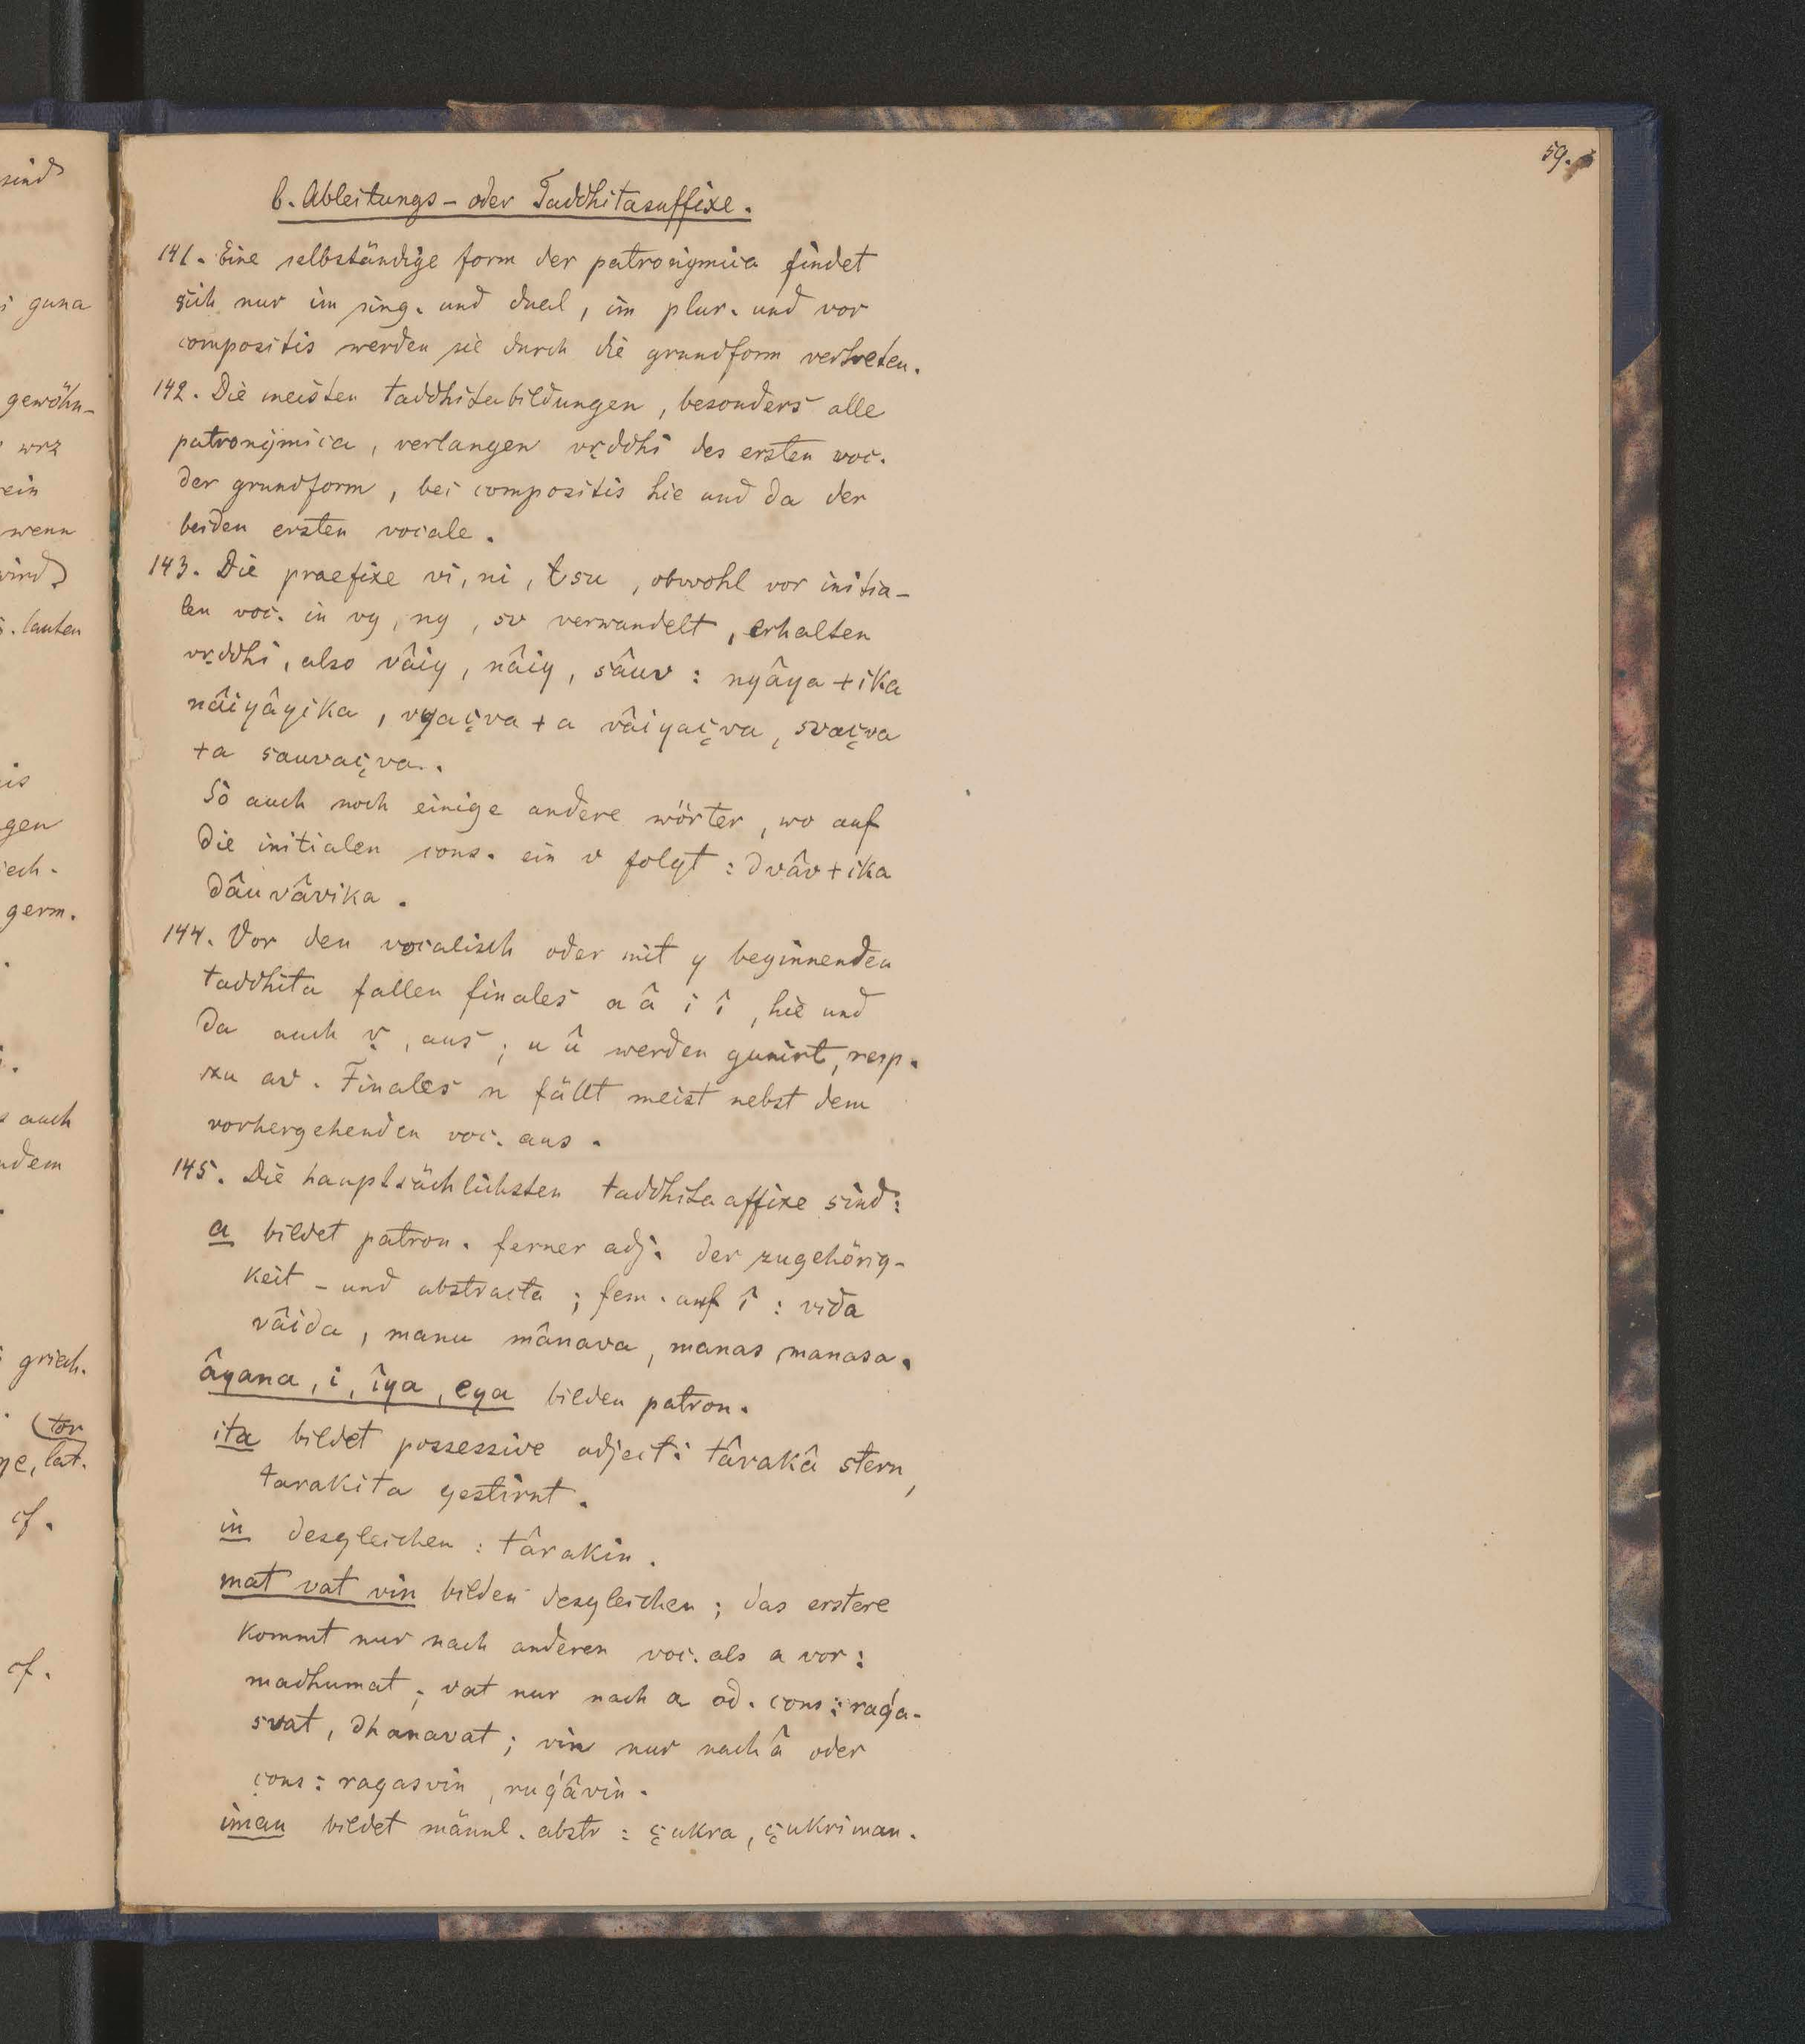 59.
b. Ableitungs- oder Taddhitasuffixe.
141. Eine selbständige form der patronymica findet
sich nur im sing. und dual, im plur. und vor
compositis werden sie durch die grundform vertreten.
142. Die meisten taddhitabildungen, besonders alle
patronymica, verlangen vṛddhi des ersten voc.
der grundform, bei compositis hie und da der
beiden ersten vocale.
143. Die praefixe vi, ni, su, obwohl vor initia-
len voc. in vy, ny, sv verwandelt, erhalten
vṛddhi, also vâiy, nâiy, sâuv: nyâya + ika
nâiyâyika, vyaçva + a vâiyaçva, svaçva
+a sauvaçva.
So auch noch einige andere wörter, wo auf
die initialen cons. ein v folgt: dvâr + ika
dâuvârika.
144. Vor den vocalisch oder mit y beginnenden
taddhita fallen finales a â i î, hie und
da auch ṛ, aus; u û werden gunirt, resp.
zu av. Finales n fällt meist nebst dem
vorhergehenden voc. aus.
145. Die hauptsächlichsten taddhitaaffixe sind:
a bildet patron. ferner adj. der zugehörig-
keit - und abstracta; fem. auf î: vida
vâida, manu mânava, manas manasa.
âyana, i, îya, eya bilden patron.
ita bildet possessive adject: târakâ stern,
tarakita gestirnt.
in desgleichen: târakin.
mat vat vin bilden desgleichen; das erstere
kommt nur nach anderen voc. als a vor:
madhumat; vat nur nach a od. cons: rag'a-
svat, dhanavat; vin nur nach â oder
cons: ragasvin, rug'âvin.
iman bildet männl. abstr: çukra, çukriman.
sind
guna
gewöhn-
wrz
ein
wenn
wird
lauten
gen
germ.
auch
griech.
tar
lat.
cf.
cf.